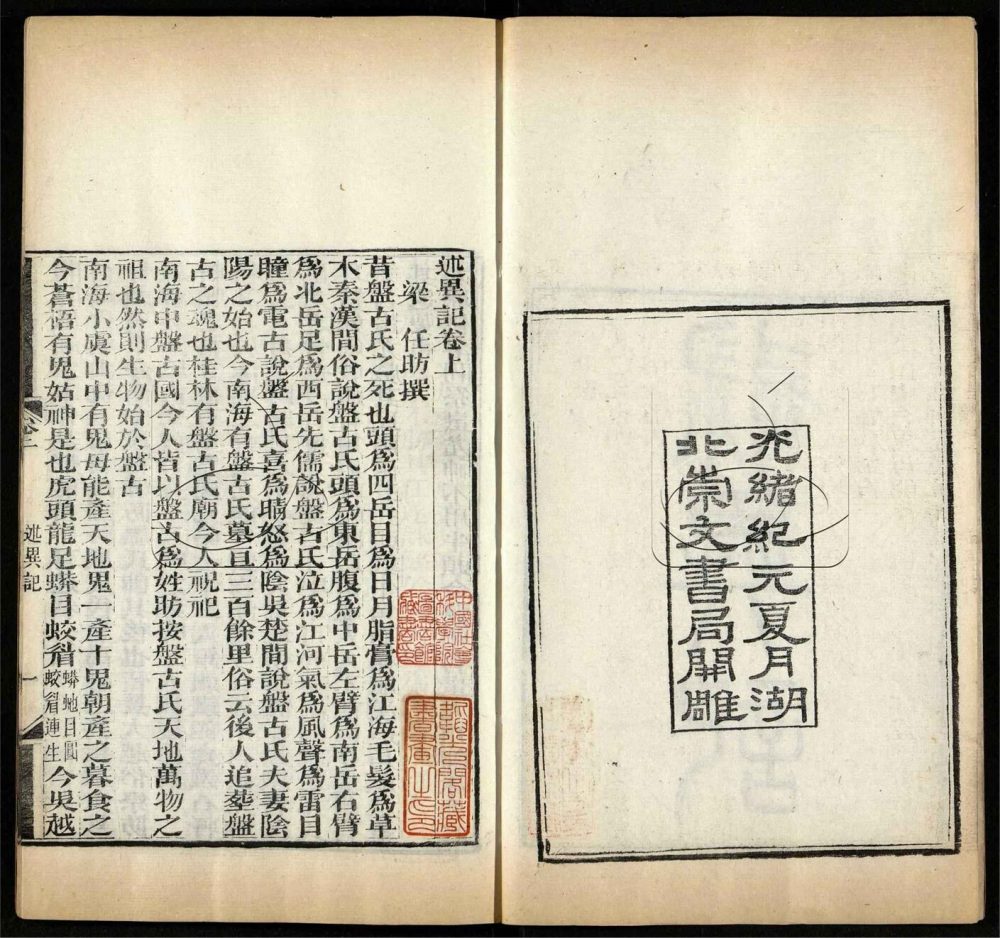 光緒紀元夏月湖
北崇文書局開雕
述異記卷上
梁 任昉撰
昔盤古氏之死也頭爲四岳目爲日月脂膏爲江海毛髮爲草
木秦漢間俗說盤古氏頭爲東岳腹爲中岳左臂爲南岳右臂
爲北岳足爲西岳先儒說盤古氏泣爲江河氣爲風聲爲雷目
瞳爲電古說盤古氏喜爲晴怒爲陰吳楚間說盤古氏夫妻陰
陽之始也今南海有盤古氏墓亘三百餘里俗云後人追葬盤
古之魂也桂林有盤古氏廟今人祝祀
南海中盤古國今人皆以盤古爲姓昉按盤古氏天地萬物之
祖也然則生物始於盤古
南海小虞山中有鬼母能產天地鬼一產十鬼朝產之暮食之
今蒼梧有鬼姑神是也虎頭龍足蟒目蛟眉蟒蛇目圓蛟眉連生今吳越
述異記
一